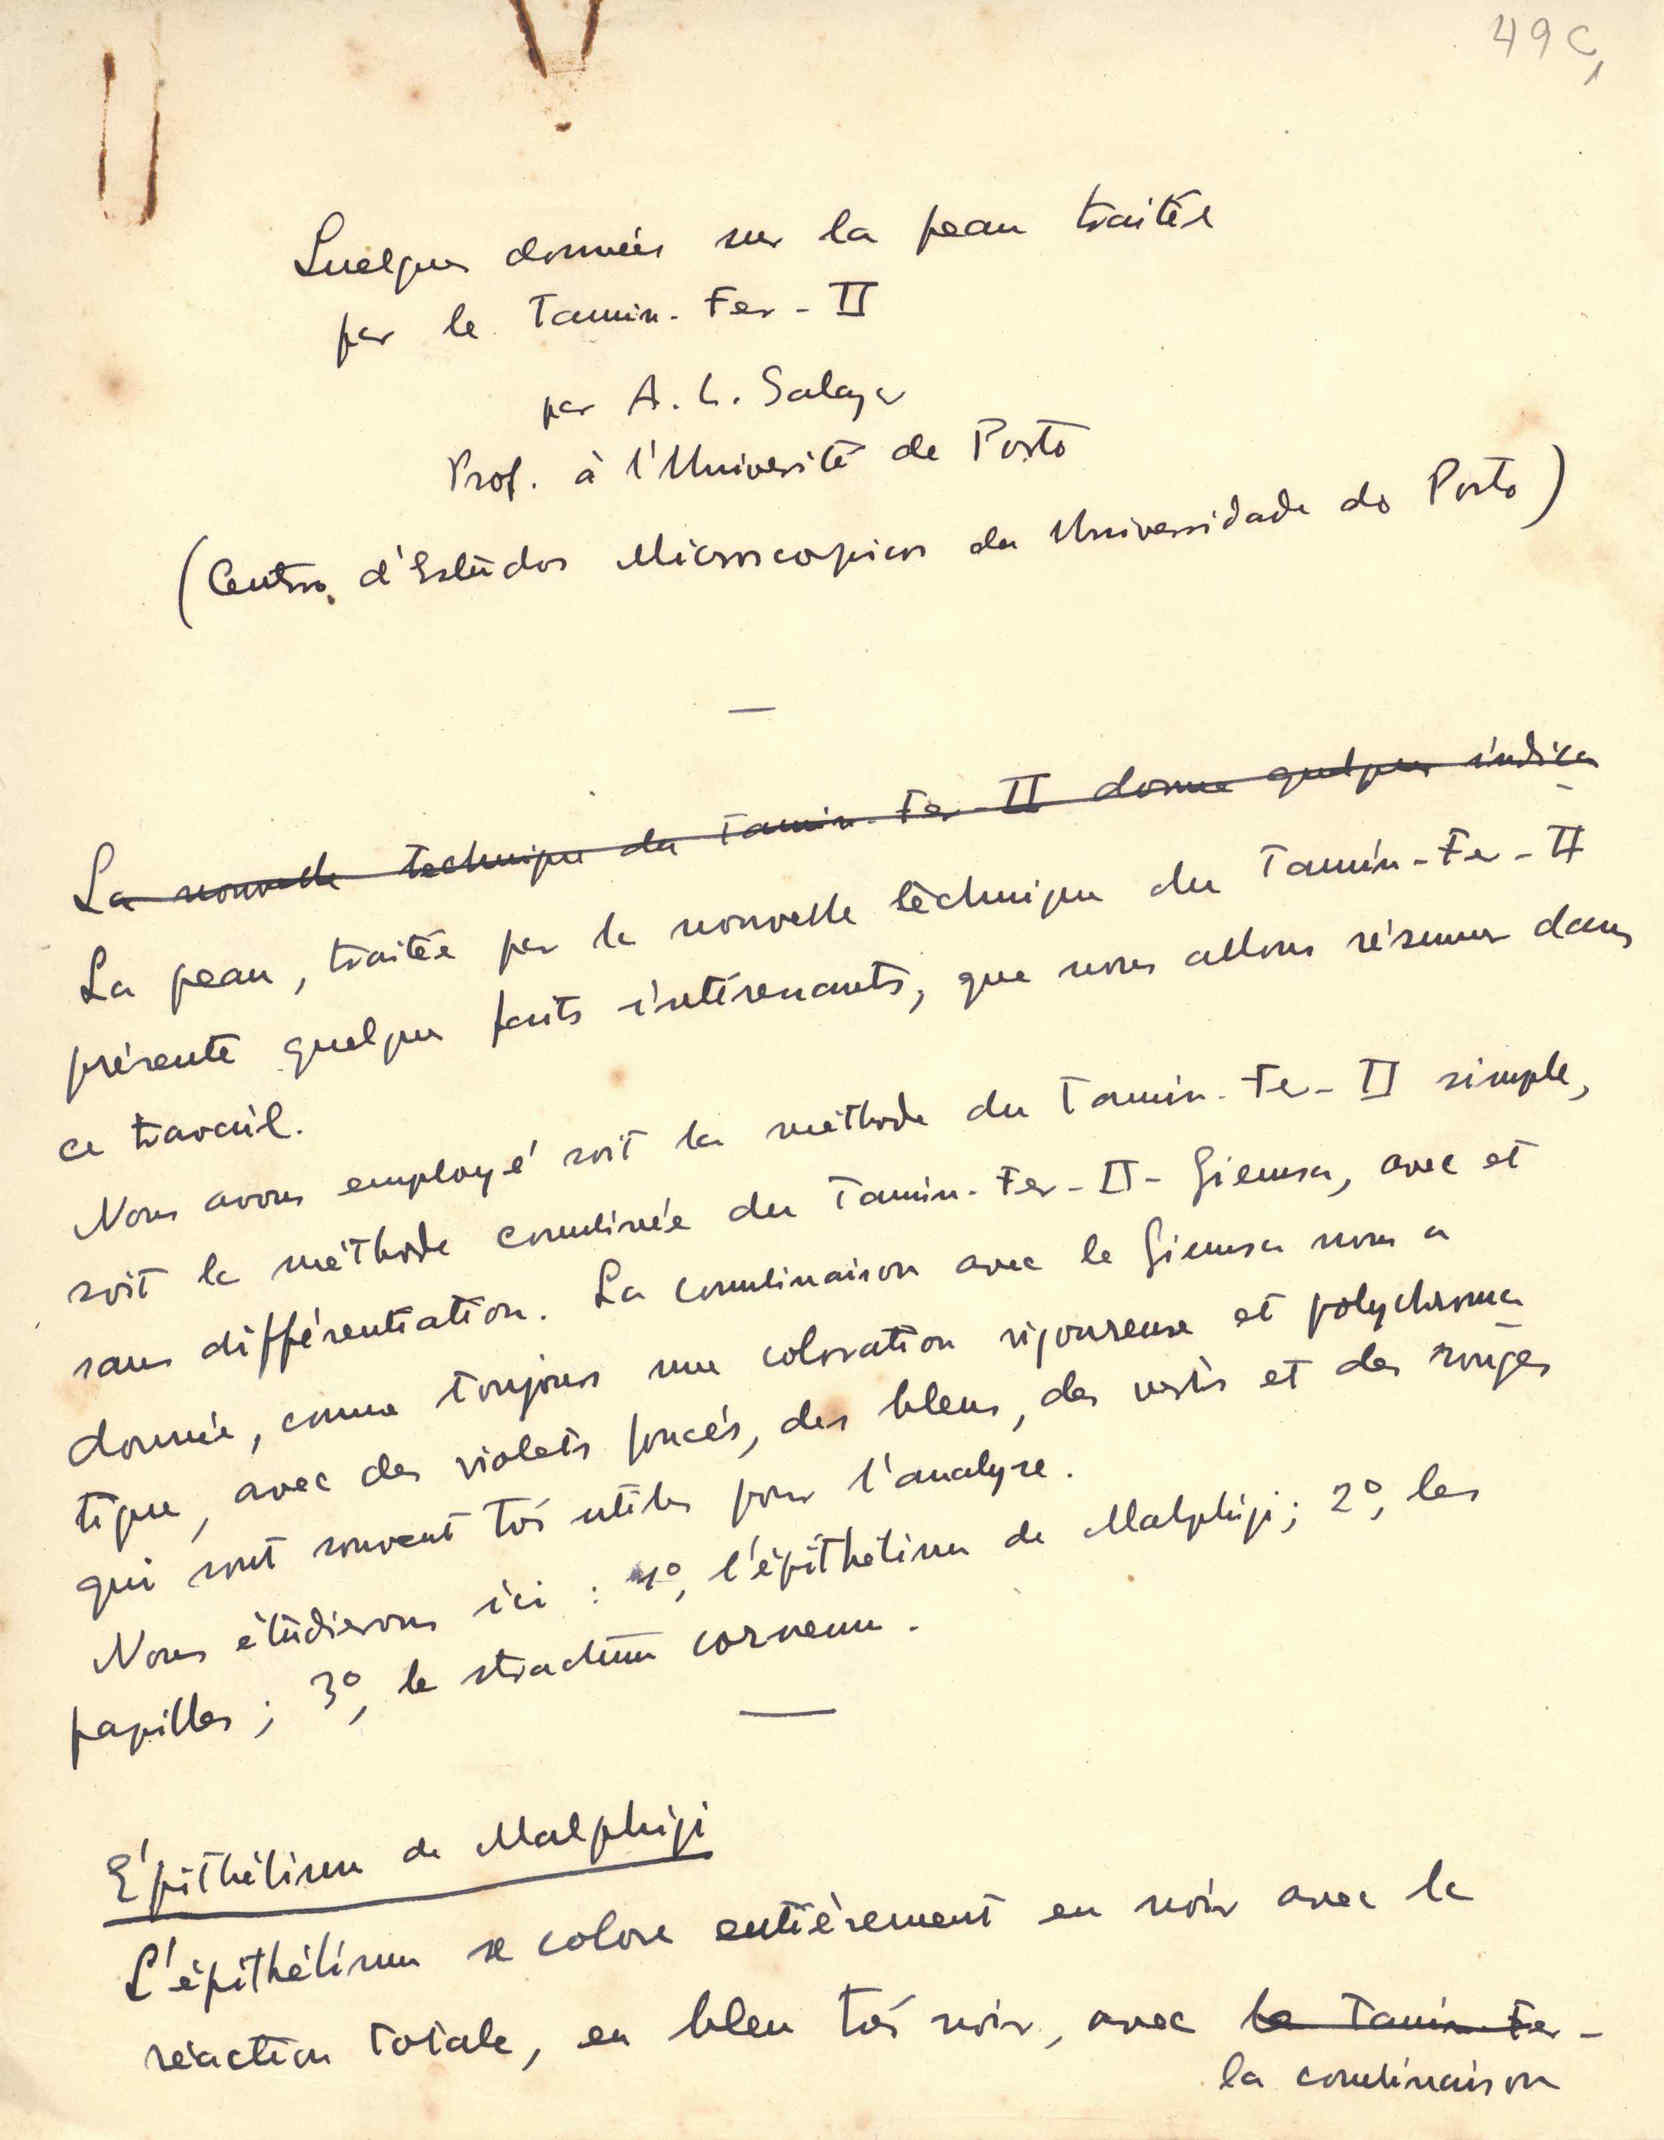 49 C,
Quelques données sur la peau traitée
par le Tannin-Fer-II
par A. L. Salazar
Prof. à l'Université de Porto
(Centro d'Estudos Microscopicos da Universidade do Porto)
La nouvelle technique du Tannin-Fer-II donne quelques indica
La peau, traitée par la nouvelle téchnique du Tannin-Fer-II
présente quelques faits intéressants, que nous allons résumer dans
ce travail.
Nous avons employé soit la méthode du Tannin-Fer-II simple,
soit la méthode combinée du Tannin-Fer-II-Giemsa, avec et
sans différentiation. La combinaison avec le Giemsa nous a
donnée, comme toujours une coloration vigoureuse et polychroma
tique, avec des violets foncés, des bleus, des verts et des rouges
qui sont souvent très utiles pour l'analyse.
Nous étudierons ici : 1º, l'épithélium de Malphigi; 2º, les
papilles; 3º, le stractum corneum.
E'pithélium de Malphigi
L'épithélium se colore entièrement en noir avec la
réaction totale, en bleu très noir, avec le Tannin-Fer-
la combinaison